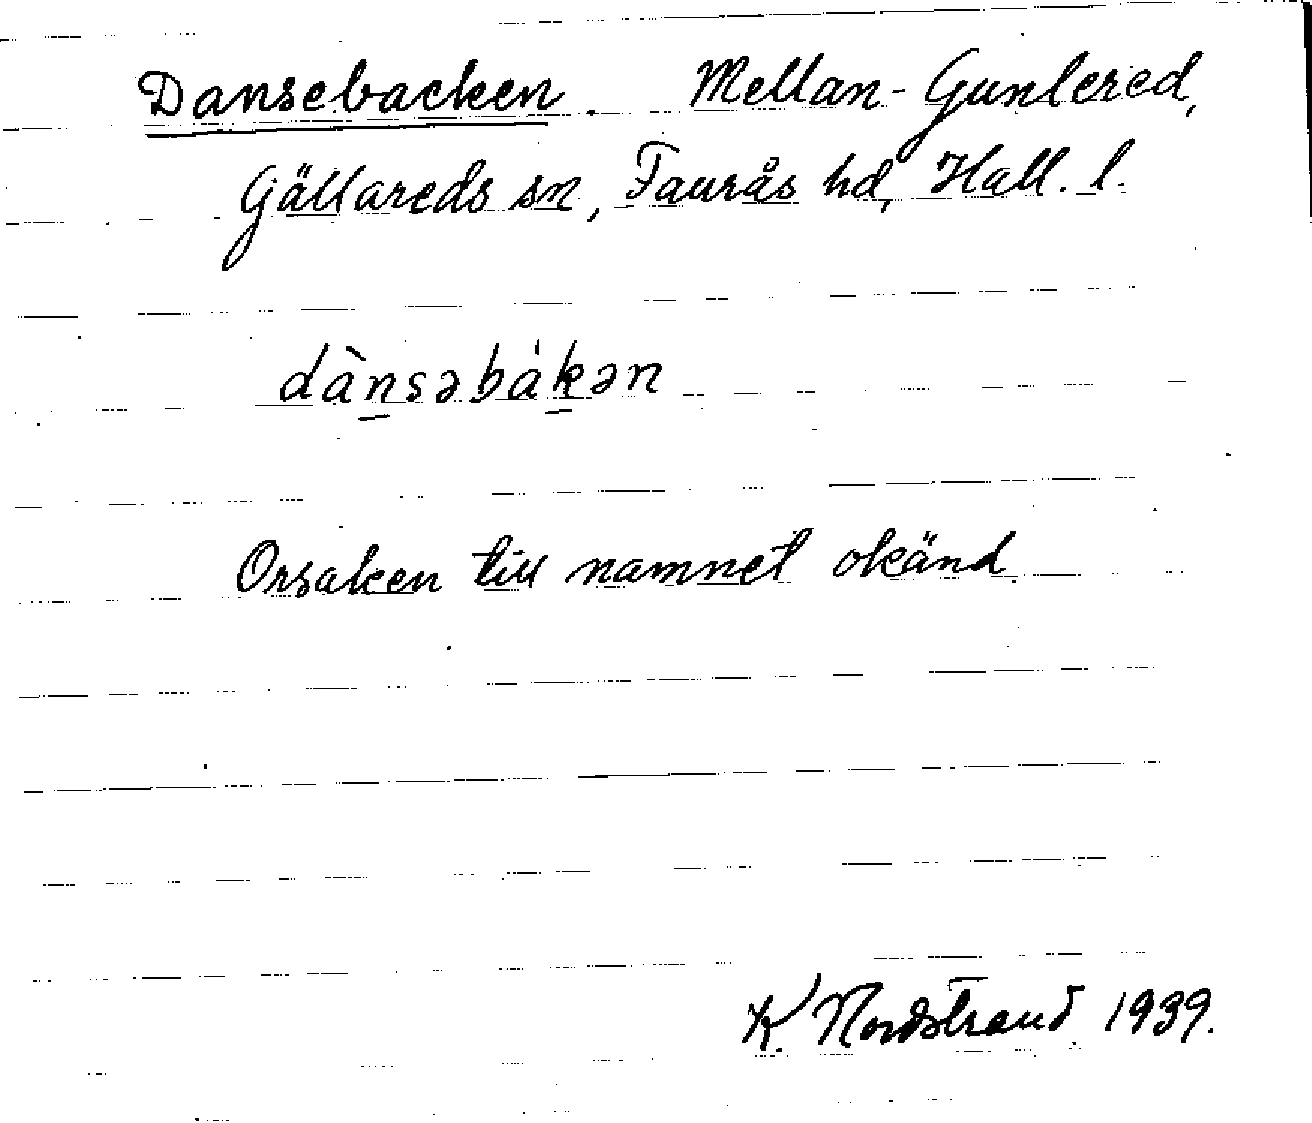 Dansebacken. Mellan-Gunlered,
Gällareds sn, Faurås hd, Hall. l.
dànsəbákən
Orsaken till namnet okänd.
K. Nordstrand 1939.